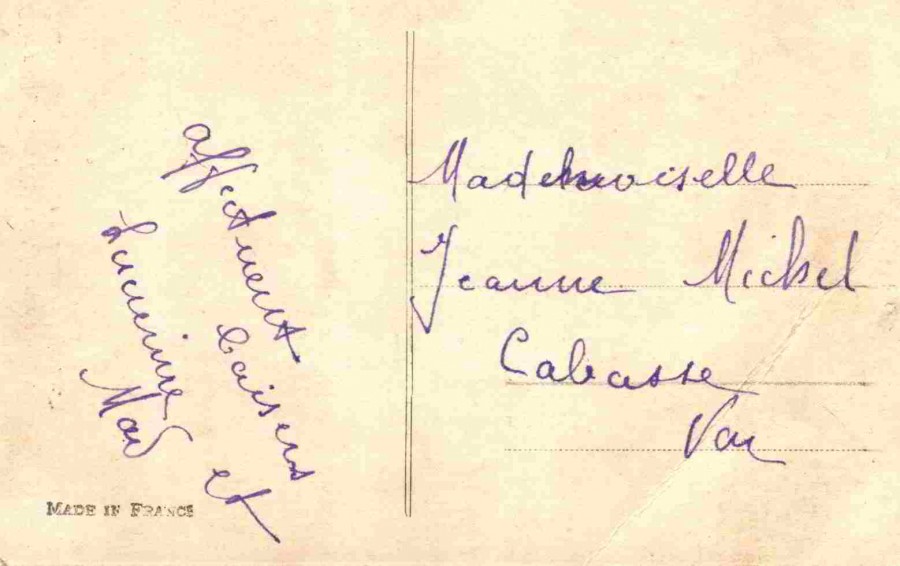 affectueux baisers et
Mademoiselle
Jeanne Michel
Cabasse
Var
MADE IN FRANCE